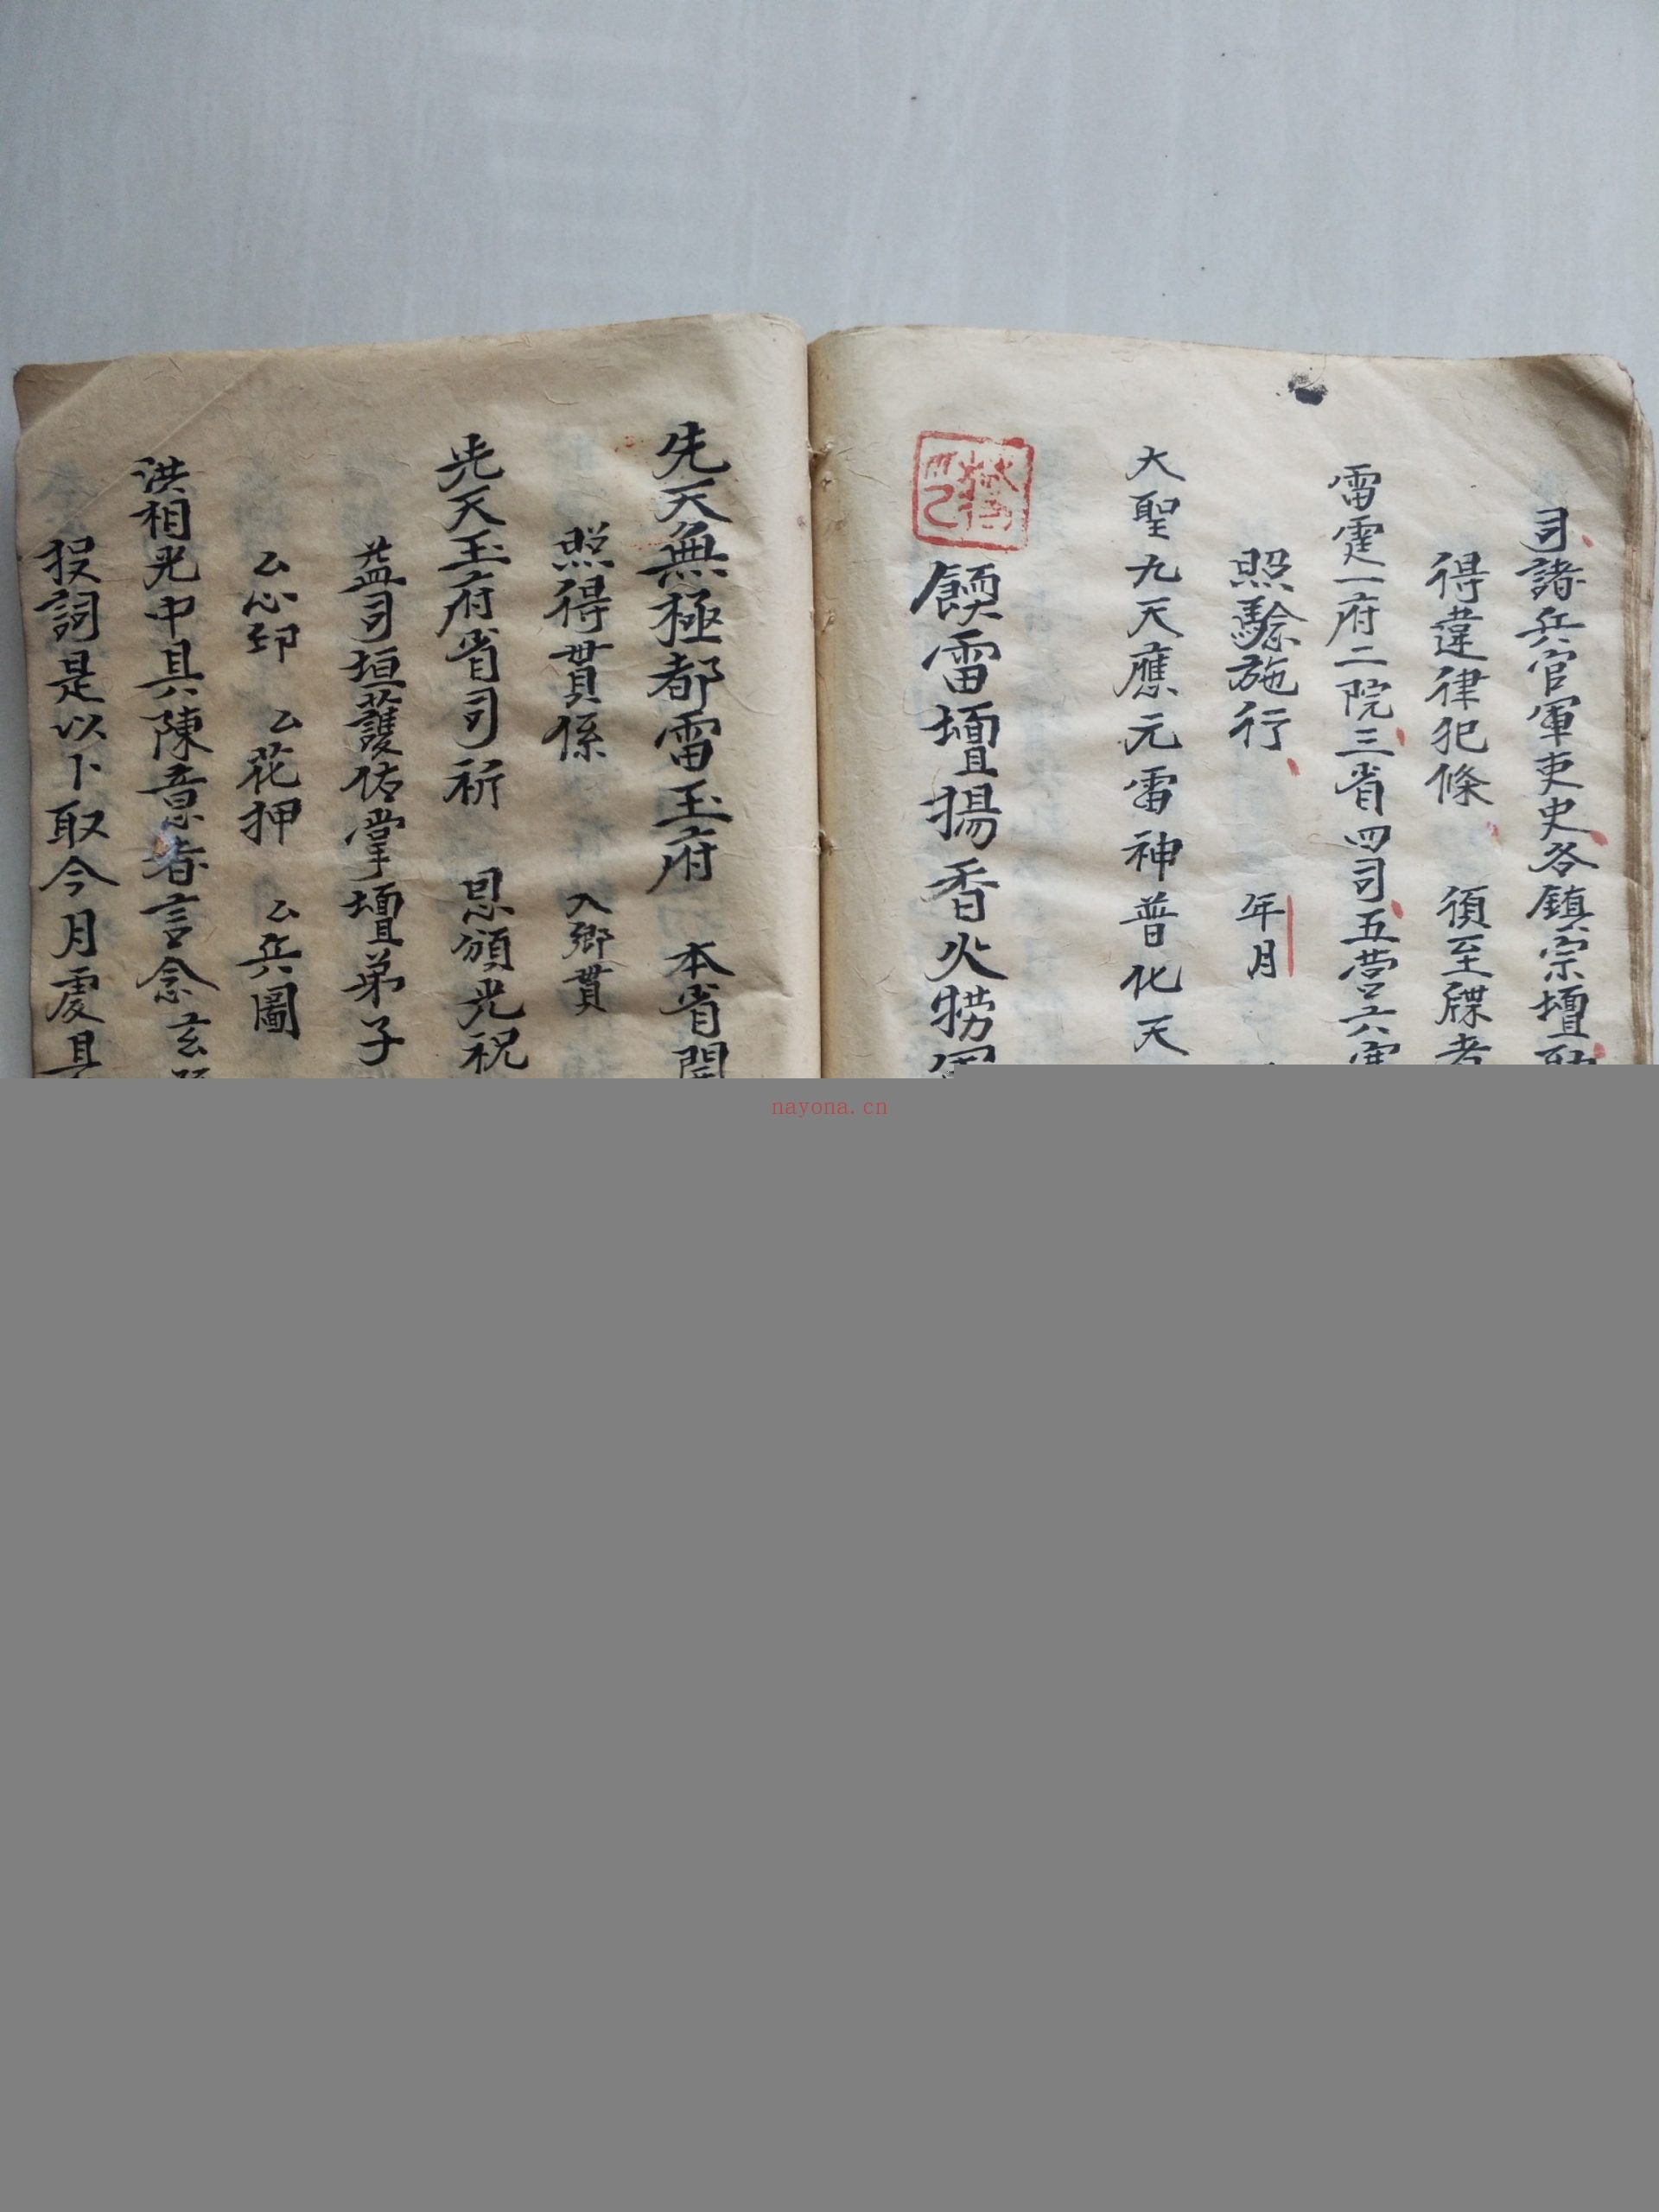 司諸兵官軍吏史各鎮宗壇
得違律犯條 須至牒者
雷霆一府二院三省四司五营六
照驗施行 年月
大聖九天應元雷神普化天
雷壇揚香火
先天無極都雷玉府 本省
照得貫係 入鄉貫
先天玉府省司祈 恩頒光祝
益司垣護佑掌壇弟子
厶心印 厶花押 厶兵圖
洪相光中具陳意者言念玄
投詞是以卜取今月處
nayona.cn